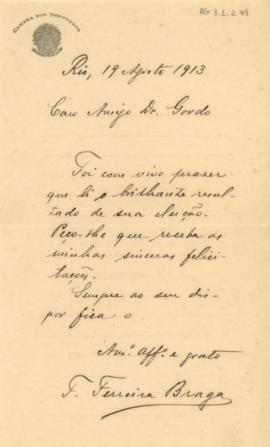 AG 3.1.2.44
CAMARA DOS DEPUTADOS
Rio, 19 Agosto 1913
Caro Amigo Dr. Gordo
Foi com vivo prazer
que li o brilhante resul-
tado de sua eleição.
Peço-lhe que receba as
minhas sinceras felici-
tações.
Sempre ao seu dis-
por fica o
Amº. Affº. e grato
F. Ferreira Braga